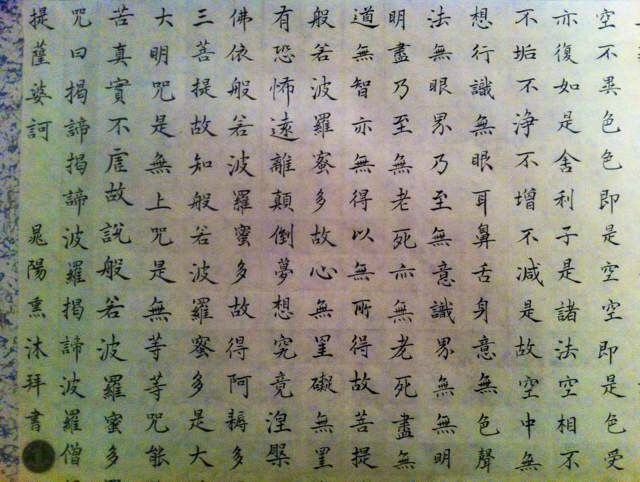 空不異色色即是空空即是色受
亦復如是舍利子是諸法空相不
不垢不淨不增不減是故空中無
想行識無眼耳鼻舌身意無色聲
法無眼界乃至無意識界無無明
明盡乃至無老死亦無老死盡無
道無智亦無得以無所得故菩提
般若波羅蜜多故心無罣礙無罣
有恐怖遠離顛倒夢想究竟涅槃
佛依般若波羅蜜多故得阿耨多
三菩提故知般若波羅蜜多是大
大明咒是無上咒是無等等咒能
苦真實不虛故說般若波羅蜜多
咒曰揭諦揭諦波羅揭諦波羅僧
提薩婆訶 晁陽熏沐拜書